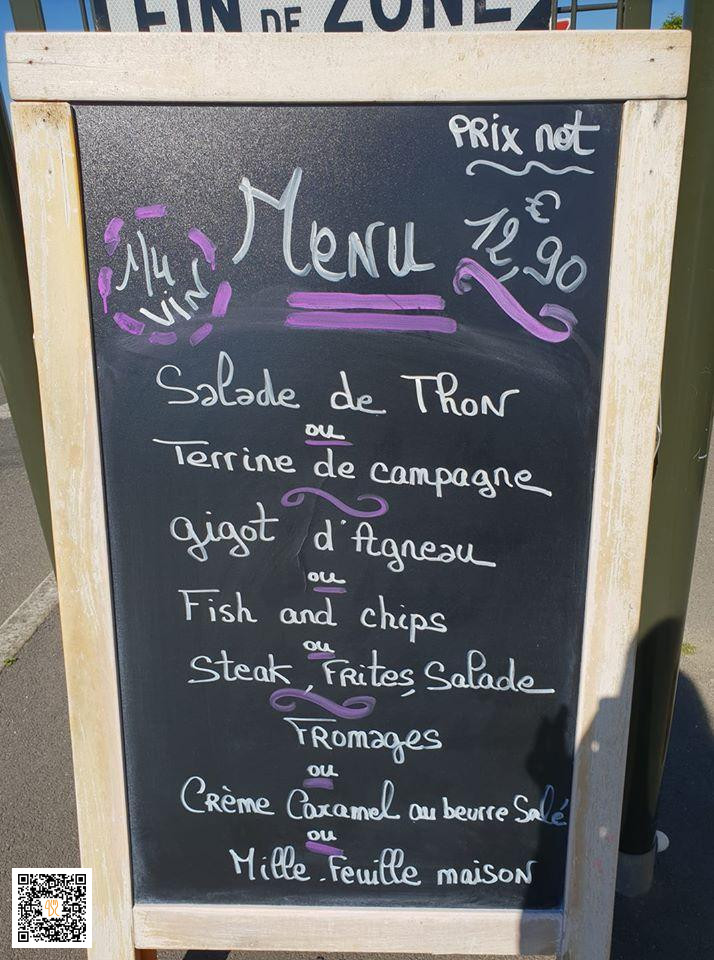 FIN DE ZONE
PRIX net
€
12,90
Menu
1/4
VIN
Salade de Thon
ou
Terrine de campagne
gigot d'Agneau
ou
Fish and chips
ou
Steak, Frites, Salade
Fromages
ou
Crème Caramel au beurre Salé
ou
Mille-Feuille maison